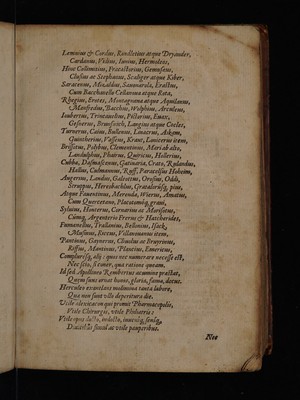 Lemnius & Cordus, Rondletius atque Dryander,
Cardanus, Velsius, Iunius, Hermoleos,
Hinc Collimitius, Fracastorius, Gemuseus,
Clusius ac Stephanus, Scaliger atque Kiber,
Saracenus, Mizaldus, Sauonarola, Erastus,
Cum Bacchanello Cellanoua atque Rota,
Rhegius, Erotes, Montagnana atque Aquilanus,
Manfredus, Bacchus, Wolphius, Arculeus,
Ioubertus, Trincauellus, Pictorius, Enax,
Gesnerus, Brunsuich, Langius atque Cocles,
Turnerus, Caius, Bullenus, Linacrus, Askam,
Quintherius, Vasseus, Krant, Loniceras item,
Brissatus, Polybus, Clementinus, Maria&
Landulphus, Phairus, Quiricus, Hollerius,
Cubba, Damascenus, Gatinaria, Crato, Rolandus,
Hollius, Culmannus, Ruff, Paracelsus Hoheim,
Augerius, Landus, Galeottus, Orosius, Oddi,
Stroppus, Hereobachius, Gratalorúsq, pius,
Atque Fauentinus, Merenda, Wierus, Amatus,
Cum Quercetano, Placatomúsq, grani,
Syluius, Houterus, Cornarius ac Marisatus,
Cúmq, Argenterio Frerus & Hatcherides,
Fumanellus, Trallianus, Bellonius, Isack,
Musinus, Ioceus, Villanouanus item,
Pantinus, Gaynerus, Clauulus ac Bruyerinus,
Riffius, Mantinus, Planctius, Emericus,
Complurésq, alij: quos nec numerare necesse est,
Nec scio, si coner, qua ratione queam.
Id sed Apollineo Rembertus acumine præstat,
Quem sumus ornat honos, gloria, fama, decus.
Hercules exanclans molimina tanta labore,
Qua non sunt vlla deperitura die.
Vtile idcirco en quo promit Pharmacopolis,
Vtile Chirurgis, vtile Phisiatris:
Vtile opus docto, indocto, iuuenîq, senîq,
Diuitibus simul ac vtile pauperibus.
Nec